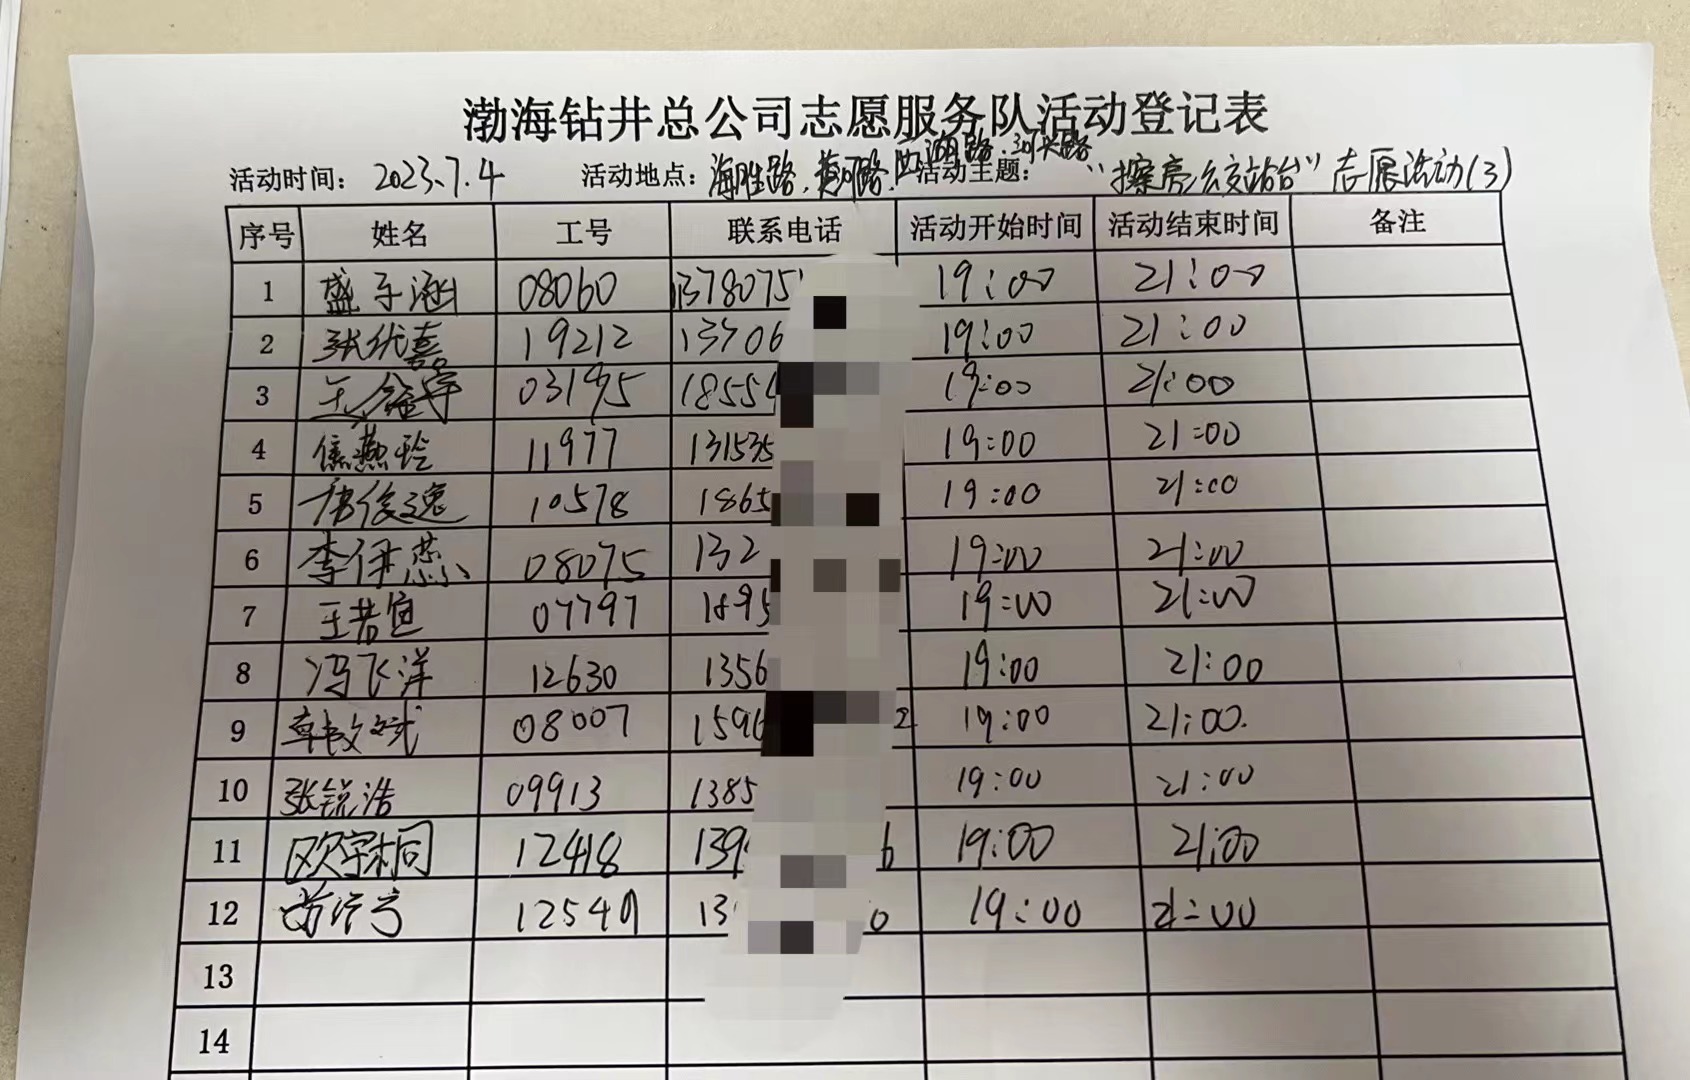 渤海钻井总公司志愿服务队活动登记表
活动时间： 2023.7.4 活动地点：海胜路，黄河路， 活动主题： “擦亮公交站台”志愿活动(3)
序号 姓名 工号 联系电话 活动开始时间 活动结束时间 备注
1 盛子涵 08060 1378075 19:00 21:00
2 张优嘉 19212 13706 19:00 21:00
3 王 03195 1855 19:00 21:00
4 焦燕玲 11977 131535 19:00 21:00
5 唐俊逸 10578 1865 19:00 21:00
6 李伊蕊 08075 132 19:00 21:00
7 王若宜 07797 1895 19:00 21:00
8 冯飞洋 12630 1356 19:00 21:00
9 08007 1596 2 19:00 21:00.
10 张锐浩 09913 1385 19:00 21:00
11 欧宇桐 12418 139 6 19:00 21:00
12 12549 13 0 19:00 21:00
13
14